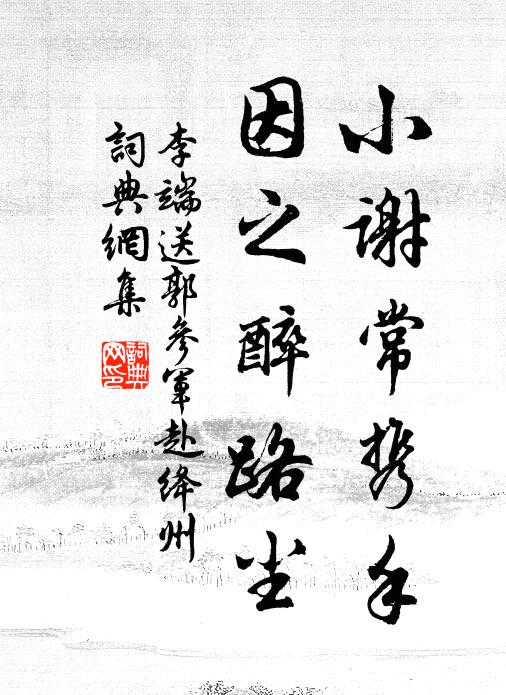 小谢常携手
因之醉路尘
李端送郭参軍赴绛州
詞典網集
詞典
网印